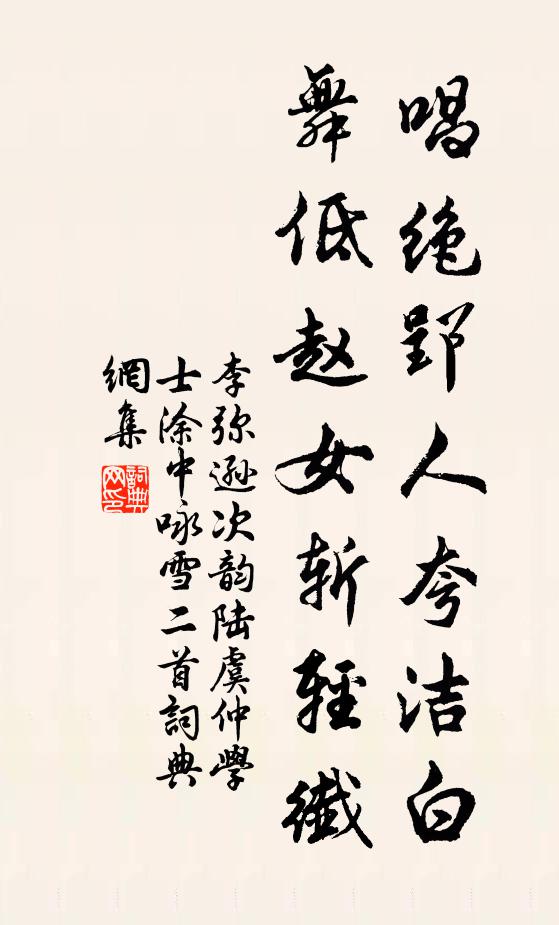 唱絶郢人夸洁白
舞低赵女斩輕纖
李弥遜次韵陆虞仲學
士涂中咏雪二首詞典
網集
詞典網印